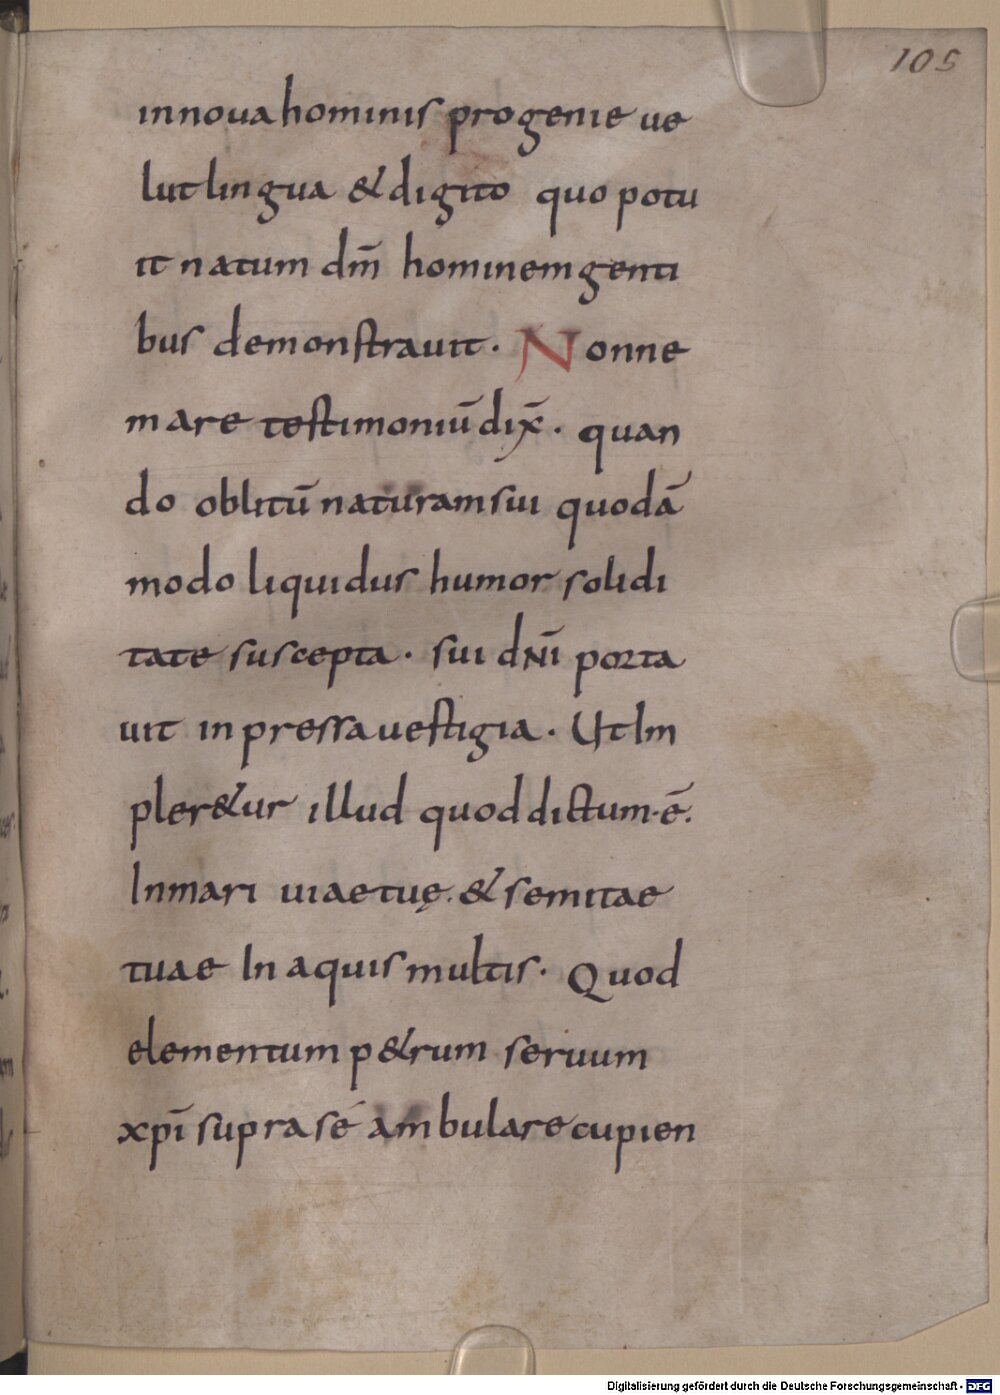 105
in noua hominis progenie ue
lut lingua & digito quo potu
it natum dm̄ hominem genti
bus demonstrauit· Nonne
mare testimoniū dix̄· quan
do oblitū naturam sui quodā
modo liquidus humor solidi
tate suscepta· sui dn̄i porta
uit inpressa uestigia· Ut Im
pler&ur illud quod dictum·ē·
In mari uiae tuę· & semitae
tuae In aquis multis· Quod
elementum p&rum seruum
xpī supra sé ambulare cupien
Digitalisierung gefördert durch die Deutsche Forschungsgemeinschaft - DFG